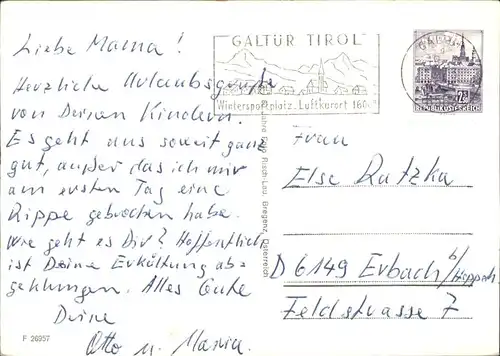 Liebe Mama!
Herzliche Urlaubsgrüsse
von Deinen Kindern.
Es geht uns soweit ganz
gut, außer das ich mir
am ersten Tag eine
Rippe gebrochen habe.
Wie geht es Dir? Hoffentlich
ist Deine Erkältung ab-
geklungen. Alles Gute
Deine
Otto u. Maria.
F 26957
GALTÜR TIROL
Wintersportplatz. Luftkurort
REPUBLIK ÖSTERREICH
Risch-Lau Bregenz, Österreich
Frau
Else Ratzka
D 6149 Erbach b/Heppenh.
Feldstrasse 7